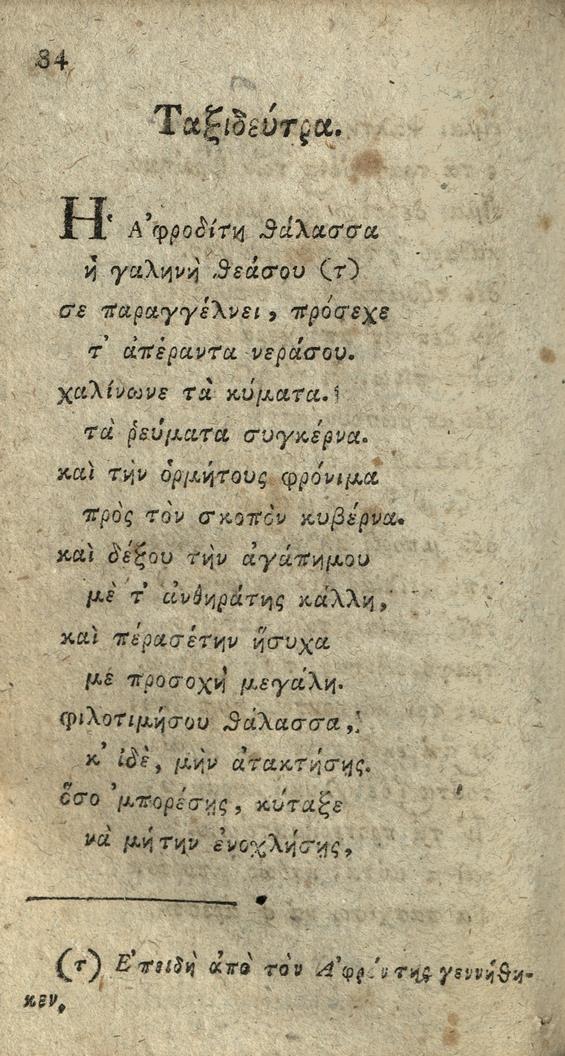 84
Ταξιδεύτρα.
Η῾ Α᾿φροδίτη θάλασσα
ἡ γαληνὴ θεάσου (τ)
σε παραγγέλνει, πρόσεχε
τ᾿ ἀπέραντα νεράσου.
χαλίνωνε τὰ κύματα.
τὰ ῥεύματα συγκέρνα.
καὶ τὴν ὁρμήτους φρόνιμα
πρὸς τὸν σκοπὸν κυβέρνα.
καὶ δέξου τὴν ἀγάπημου
μὲ τ᾿ ἀνθηράτης κάλλη,
καὶ πέρασέτην ἥσυχα
μέ προσοχὴ μεγάλη.
φιλοτιμήσου θάλασσα,
κ᾿ ἰδὲ, μὴν ἀτακτήσῃς.
ὅσο ᾿μπορέσῃς, κύταξε
νὰ μήτην ἐνοχλήσῃς,
(τ) Ε᾿πειδὴ ἀπὸ τὸν Α᾿φρόντης γεννήθη-
κεν,